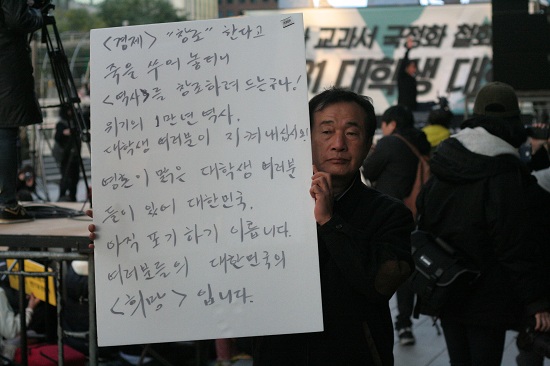 <경제> "창조" 한다고
죽을 쑤며 놀더니
<역사>를 창조하려 드는구나!
위기의 1만년 역사.
대학생 여러분이 지켜내십시오!
영혼이 맑은 대학생 여러분
들이 있어 대한민국.
아직 포기하기 이릅니다.
여러분들의 대한민국의
<희망> 입니다.
교과서 국정화 철회
대학생 대